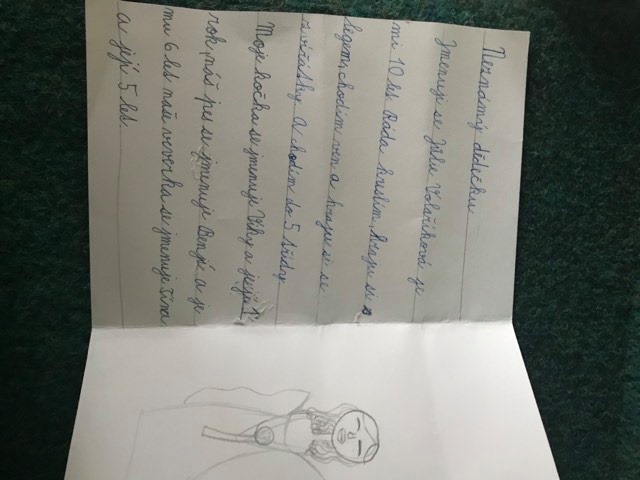 Neznámý dědečku
Jmenuji se Júlie Volaříková je
mi 10 let Ráda kreslím, hraju si s
legem, chodím ven a hraju si se
zvířátky. A chodím do 5 třídy
Moje kočka se jmenuje Viky a jeji 1
rok, náš pes se jmenuje Benji a je
mu 6 let naše veverka se jmenuje Tína
a její 5 let.